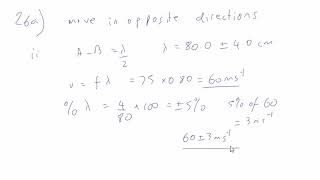 26a) move in opposite directions
ii A-B = λ/2 λ = 80.0 ± 4.0 cm
v = fλ = 75 × 0.80 = 60ms⁻¹
% λ = 4/80 × 100 = ±5% 5% of 60
= 3ms⁻¹
60 ± 3ms⁻¹